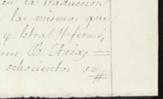 la traduccion
las mismas que
y letra Y firmó
en B. Arias =
ochocientos se